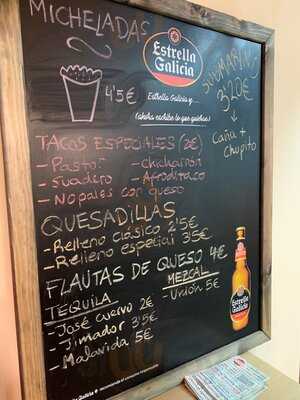 MICHELADAS
4'5€
Estrella
Galicia
Estrella Galicia y...
(ahora escribe lo que quieras)
SUBMARINO
3'20€
Caña +
Chupito
TACOS ESPECIALES (2€)
- Pastor - chicharrón
- Suadero - Afroditaco
- Nopales con queso
QUESADILLAS
- Relleno clásico 2'5€
- Relleno especial 3'5€
FLAUTAS DE QUESO 4€
TEQUILA MEZCAL
- José cuervo 2€ - Unión 5€
- Jimador 3'5€
- Malavida 5€